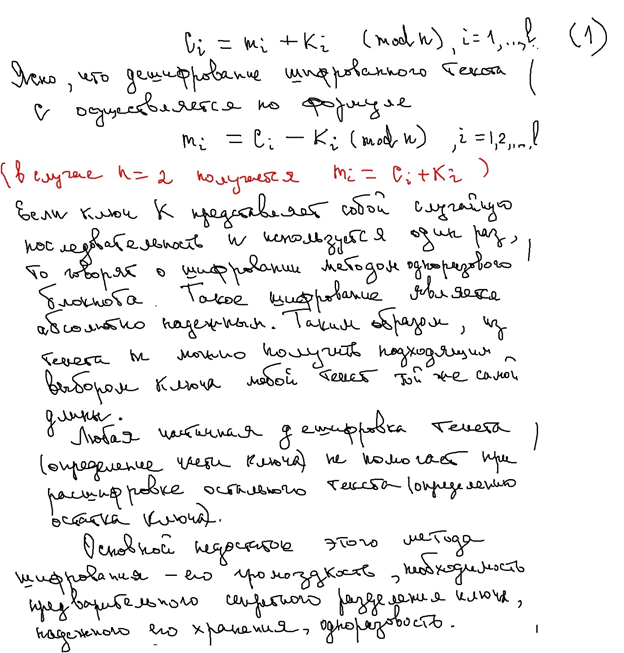 c_i = m_i + K_i (mod n), i = 1, ..., l. (1)
Ясно, что дешифрование шифрованного текста
c осуществляется по формуле
m_i = c_i − K_i (mod n) , i = 1,2,..., l
(в случае n = 2 получается m_i = c_i + K_i )
Если ключ K представляет собой случайную
последовательность и используется один раз,
то говорят о шифровании методом одноразового
блокнота. Такое шифрование является
абсолютно надежным. Таким образом, из
текста m можно получить подходящим
выбором ключа любой текст той же самой
длины.
Любая частичная дешифровка текста
(определение части ключа) не помогает при
расшифровке остального текста (определению
остатка ключа).
Основной недостаток этого метода
шифрования – его громоздкость, необходимость
предварительного секретного разделения ключа,
надежного его хранения, одноразовость.